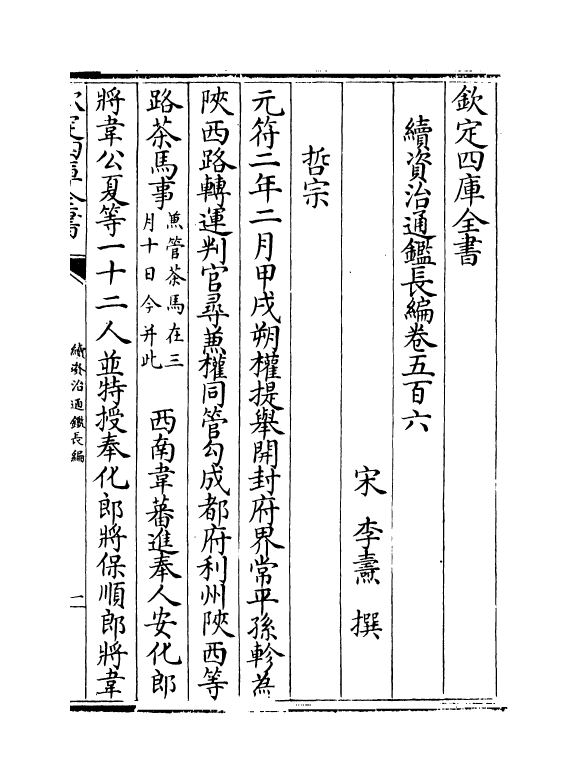 欽定四庫全書
續資治通鑑長編卷五百六
宋 李燾 撰
哲宗
元符二年二月甲戌朔權提舉開封府界常平孫軫為
陜西路轉運判官尋兼權同管勾成都府利州陜西等
路茶馬事兼管茶馬在三月十日今并此 西南韋蕃進奉人安化郎
將韋公夏等一十二人並特授奉化郎將保順郎將韋
欽定四庫全書
續資治通鑑長編
一